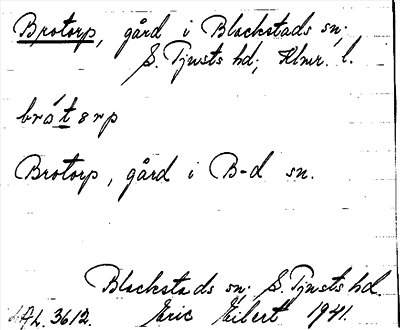 Brotorp, gård i Blackstads sn;
S. Tjusts hd; Klmr. l.
brótərp
Brotorp, gård i B-d sn.
Blackstads sn; S. Tjusts hd.
AL. 3612. Eric Eilert 1941.